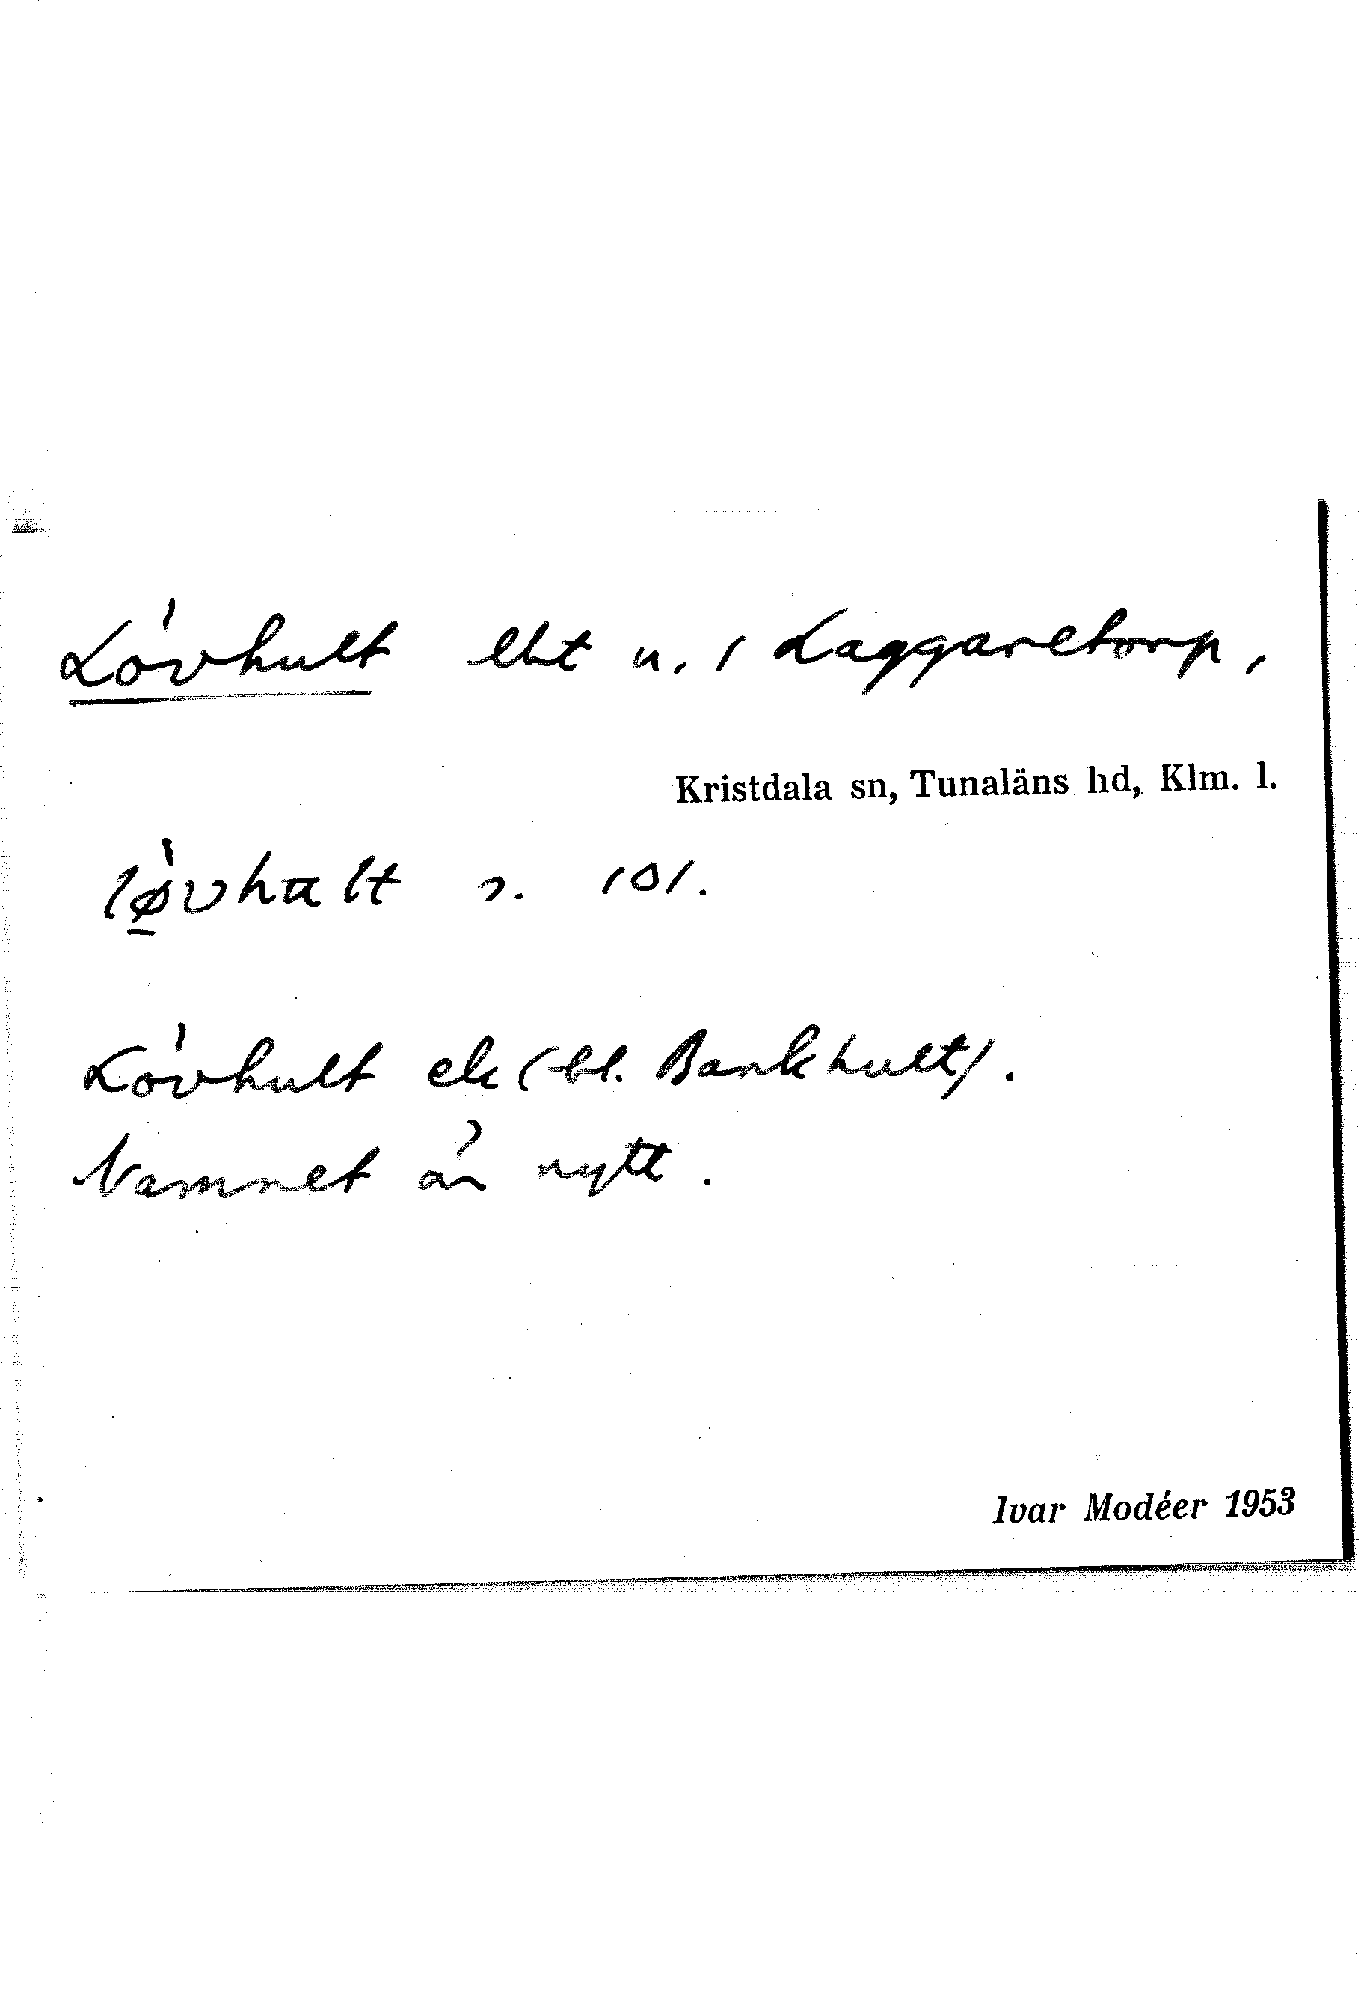 Lövhult lht u. / Laggaretorp,
Kristdala sn, Tunaläns hd, Klm. l.
løvhult 101.
Lövhult ek (bl. Bankhult).
Namnet är nytt.
Ivar Modéer 1953